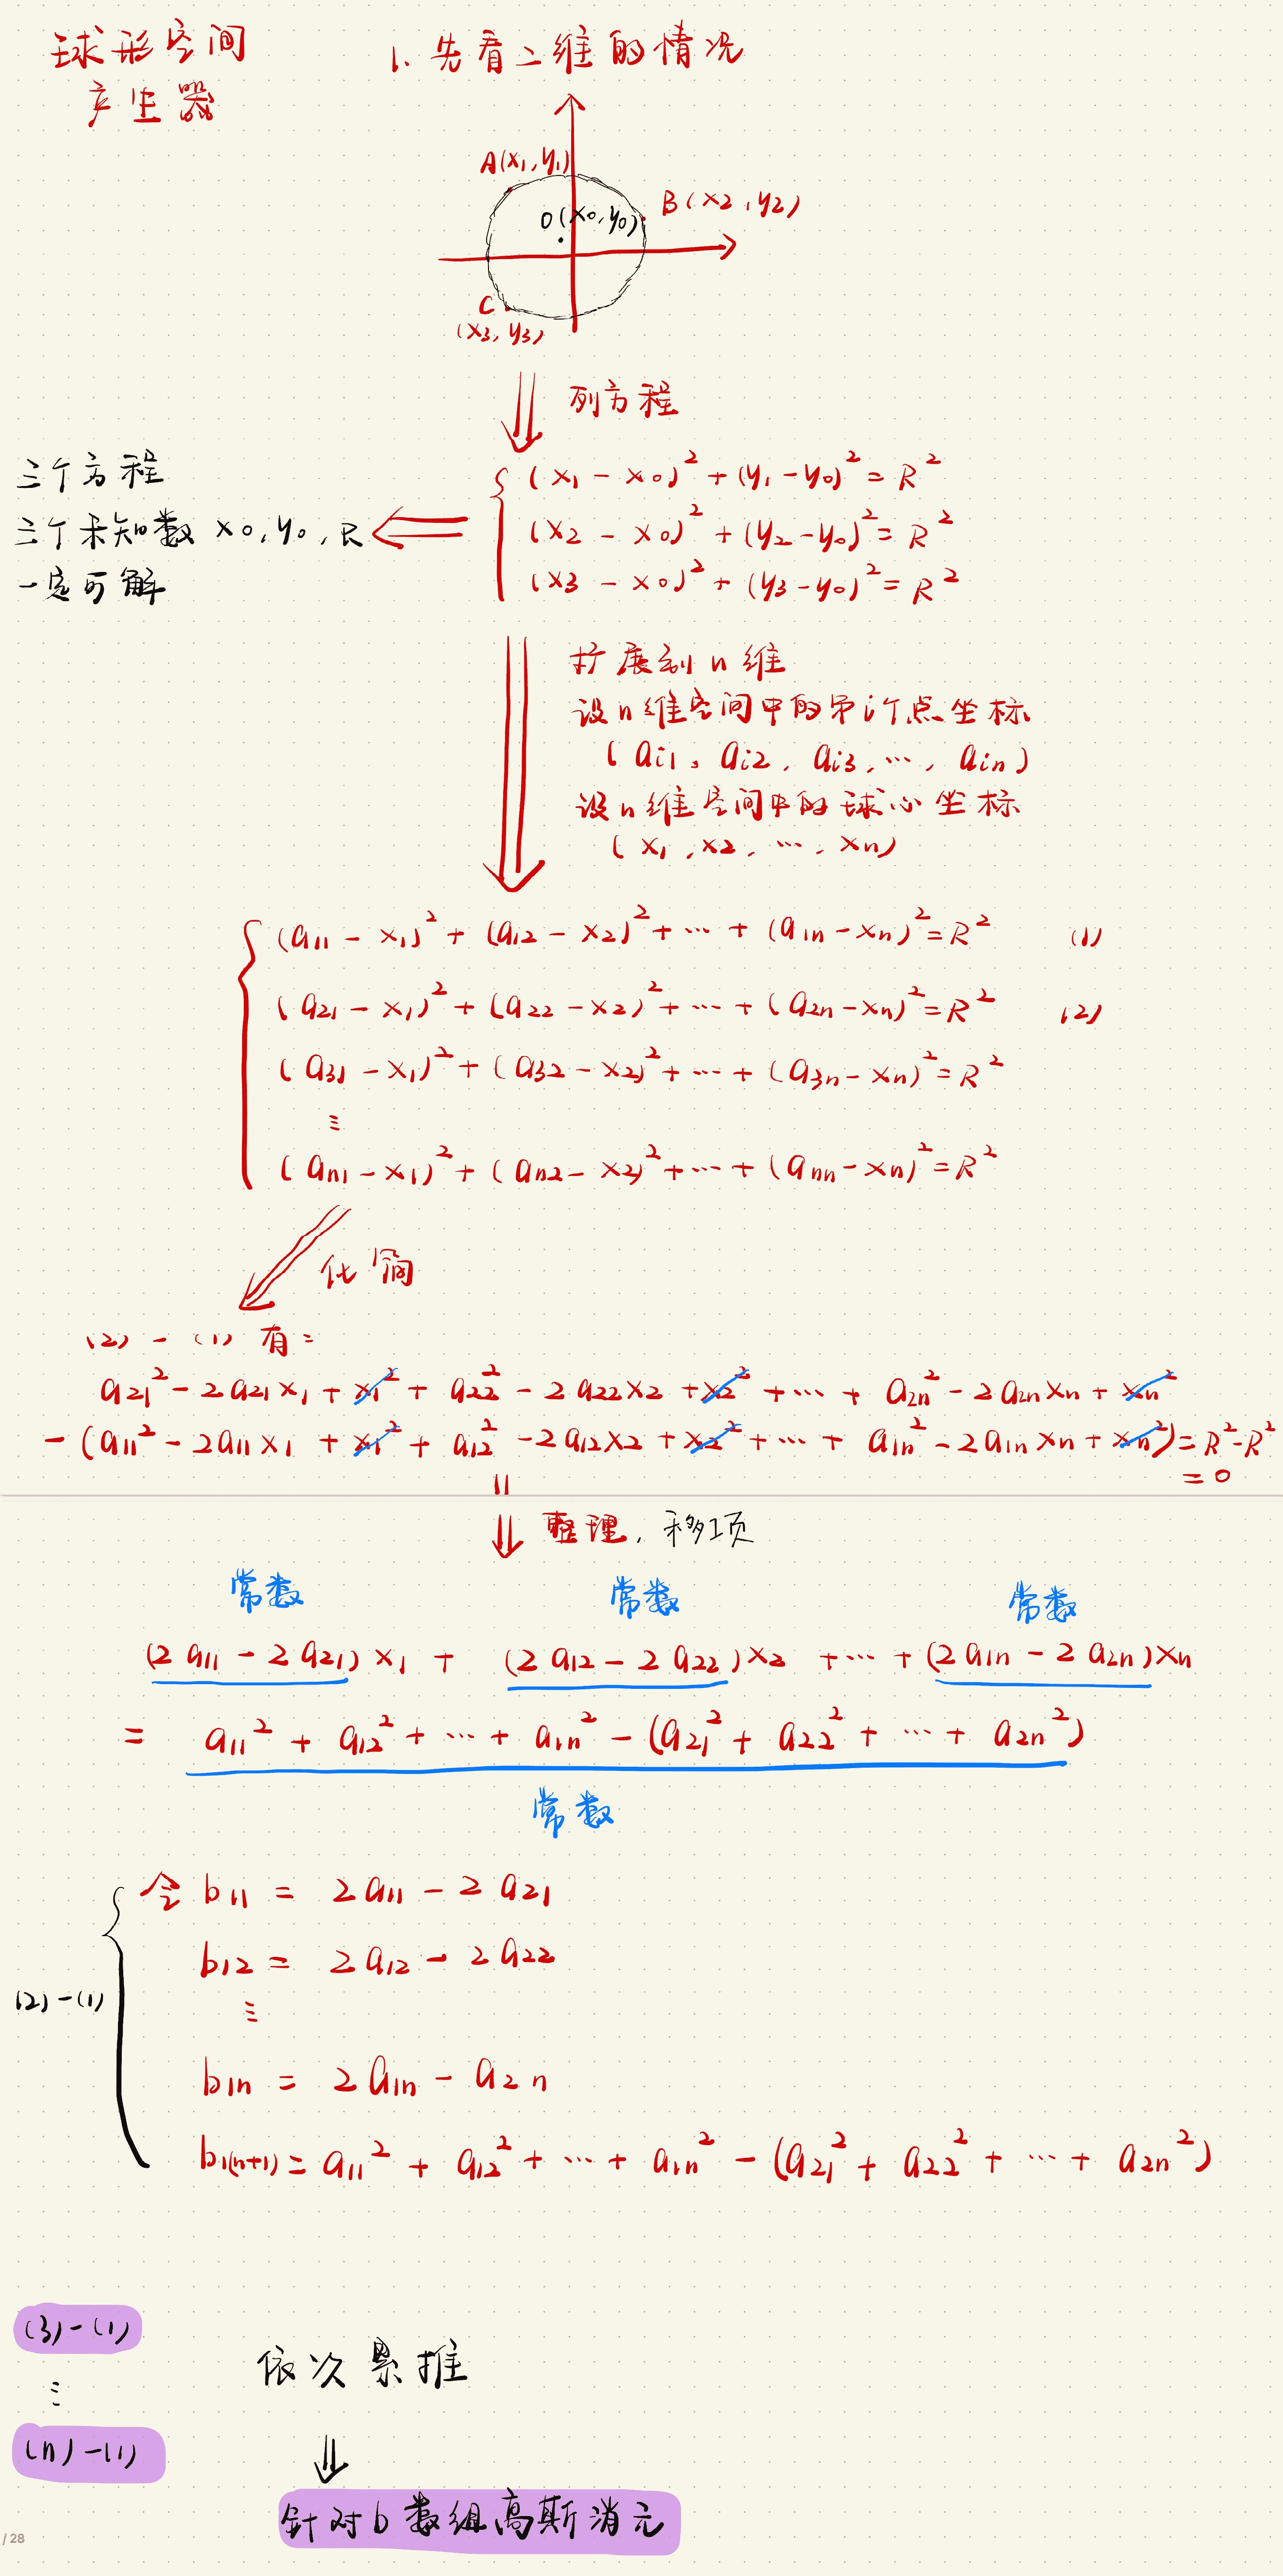 球形空间
产生器
1. 先看二维的情况
A(x1, y1)
B(x2, y2)
O(x0, y0)
C
(x3, y3)
列方程
三个方程
三个未知数 x0, y0, R
一定可解
(x1 - x0)² + (y1 - y0)² = R²
(x2 - x0)² + (y2 - y0)² = R²
(x3 - x0)² + (y3 - y0)² = R²
扩展到 n 维
设 n 维空间中的第 i 个点坐标
(ai1, ai2, ai3, ⋯, ain)
设 n 维空间中的球心坐标
(x1, x2, ⋯, xn)
(a11 - x1)² + (a12 - x2)² + ⋯ + (a1n - xn)² = R² (1)
(a21 - x1)² + (a22 - x2)² + ⋯ + (a2n - xn)² = R² (2)
(a31 - x1)² + (a32 - x2)² + ⋯ + (a3n - xn)² = R²
⋮
(an1 - x1)² + (an2 - x2)² + ⋯ + (ann - xn)² = R²
化简
(2) - (1) 有:
a21² - 2a21x1 + x1² + a22² - 2a22x2 + x2² + ⋯ + a2n² - 2a2nxn + xn²
- (a11² - 2a11x1 + x1² + a12² - 2a12x2 + x2² + ⋯ + a1n² - 2a1nxn + xn²) = R² - R²
= 0
整理, 移项
常数 常数 常数
(2a11 - 2a21)x1 + (2a12 - 2a22)x2 + ⋯ + (2a1n - 2a2n)xn
= a11² + a12² + ⋯ + a1n² - (a21² + a22² + ⋯ + a2n²)
常数
令 b11 = 2a11 - 2a21
b12 = 2a12 - 2a22
(2) - (1)
⋮
b1n = 2a1n - a2n
b1(n+1) = a11² + a12² + ⋯ + a1n² - (a21² + a22² + ⋯ + a2n²)
(3) - (1)
依次累推
⋮
(n) - (1)
针对 b 数组高斯消元
/ 28